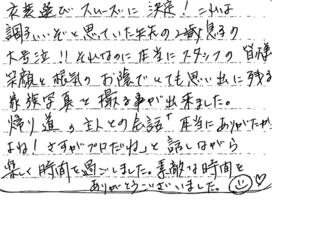 衣装選び スムーズに 決定！これは
調子いいぞと思っていた矢先の2歳息子の
大号泣!!それなのに本当にスタッフの皆様
笑顔と根気のお陰でとても思い出に残る
家族写真を撮る事が出来ました。
帰り道の主人との会話「本当にありがたか
よね！さすがプロだね」と話しながら
楽しく時間を過ごしました。素敵な時間を
ありがとうございました。